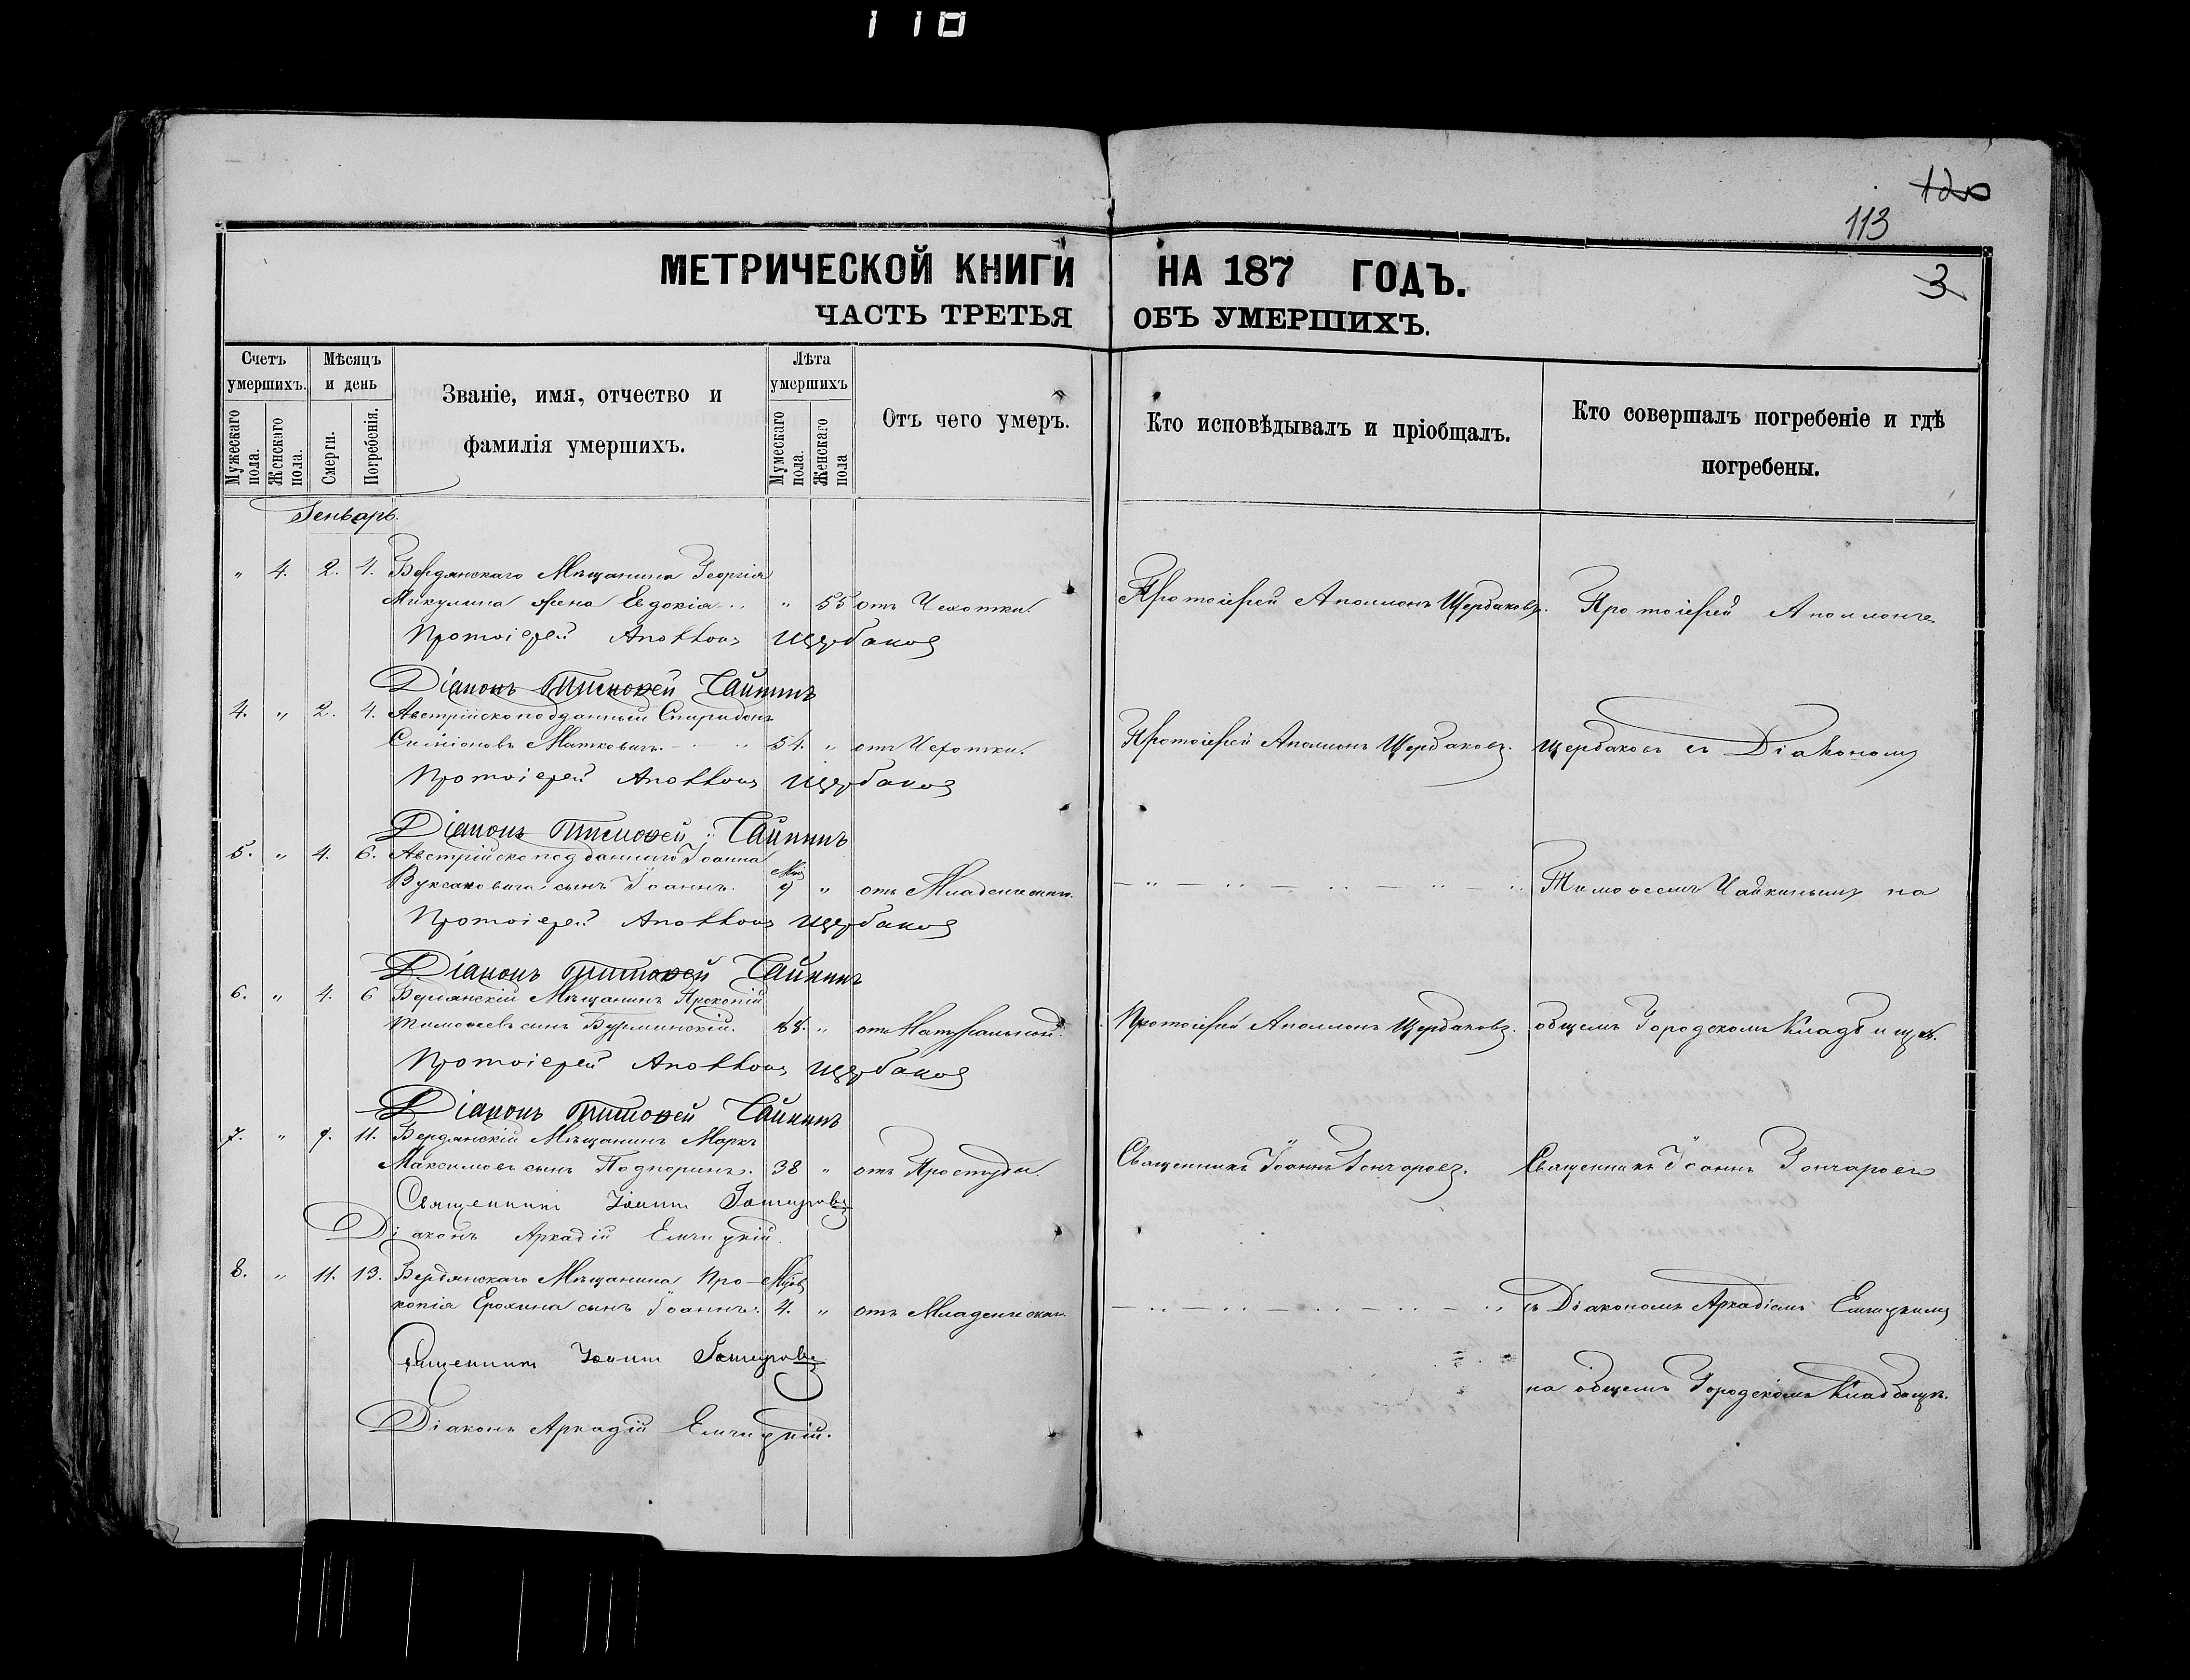 110
120
113
3
МЕТРИЧЕСКОЙ КНИГИ НА 187 ГОДЪ.
ЧАСТЬ ТРЕТЬЯ ОБЪ УМЕРШИХЪ.
Счетъ умершихъ.
Мужескаго пола.
Женскаго пола.
Мѣсяцъ и день
Смерти.
Погребенія.
Званіе, имя, отчество и
фамилія умершихъ.
Лѣта умершихъ
Мужескаго пола.
Женскаго пола
Отъ чего умеръ.
Кто исповѣдывалъ и пріобщалъ.
Кто совершалъ погребеніе и гдѣ
погребены.
Генварь.
" 4. 2. 4. Бердянскаго Мѣщанина Георгія
Микулина жена Евдокія " 55 отъ Чехотки. Протоіерей Аполлонъ Щербаковъ. Протоіерей Аполлонъ
Протоіерей Аполлонъ Щербаковъ
Діаконъ Тимоѳей Чайкинъ
4. " 2. 4. Австрійскоподданный Спиридонъ
Симіоновъ Маткевичъ. 54. " отъ Чехотки. Протоіерей Аполлонъ Щербаковъ. Щербаковъ съ Діакономъ
Протоіерей Аполлонъ Щербаковъ
Діаконъ Тимоѳей Чайкинъ
5. " 4. 6. Австрійскоподданнаго Іоанна
Вуксановича сынъ Іоаннъ. 9 " отъ Младенческ. Тимоѳеемъ Чайкинымъ на
Протоіерей Аполлонъ Щербаковъ
Діаконъ Тимоѳей Чайкинъ
6. " 4. 6 Бердянскій Мѣщанинъ Прокопій
Тимоѳеевъ сынъ 88. " отъ Натуральной. Протоіерей Аполлонъ Щербаковъ. общемъ Городскомъ Кладбищѣ.
Протоіерей Аполлонъ Щербаковъ
Діаконъ Тимоѳей Чайкинъ
7. " 9. 11. Бердянскій Мѣщанинъ Маркъ
Максимовъ сынъ Подпоринъ. 38 " отъ Простуды. Священникъ Іоаннъ Гончаровъ. Священникъ Іоаннъ Гончаровъ
Священникъ Іоаннъ Гончаровъ
Діаконъ Аркадій Елчицкій.
8. " 11. 13. Бердянскаго Мѣщанина Про-
копія Ерохина сынъ Іоаннъ. 4. " отъ Младенческ. съ Діакономъ Аркадіемъ Елчицкимъ
Священникъ Іоаннъ Гончаровъ
на общемъ Городскомъ Кладбищѣ.
Діаконъ Аркадій Елчицкій.